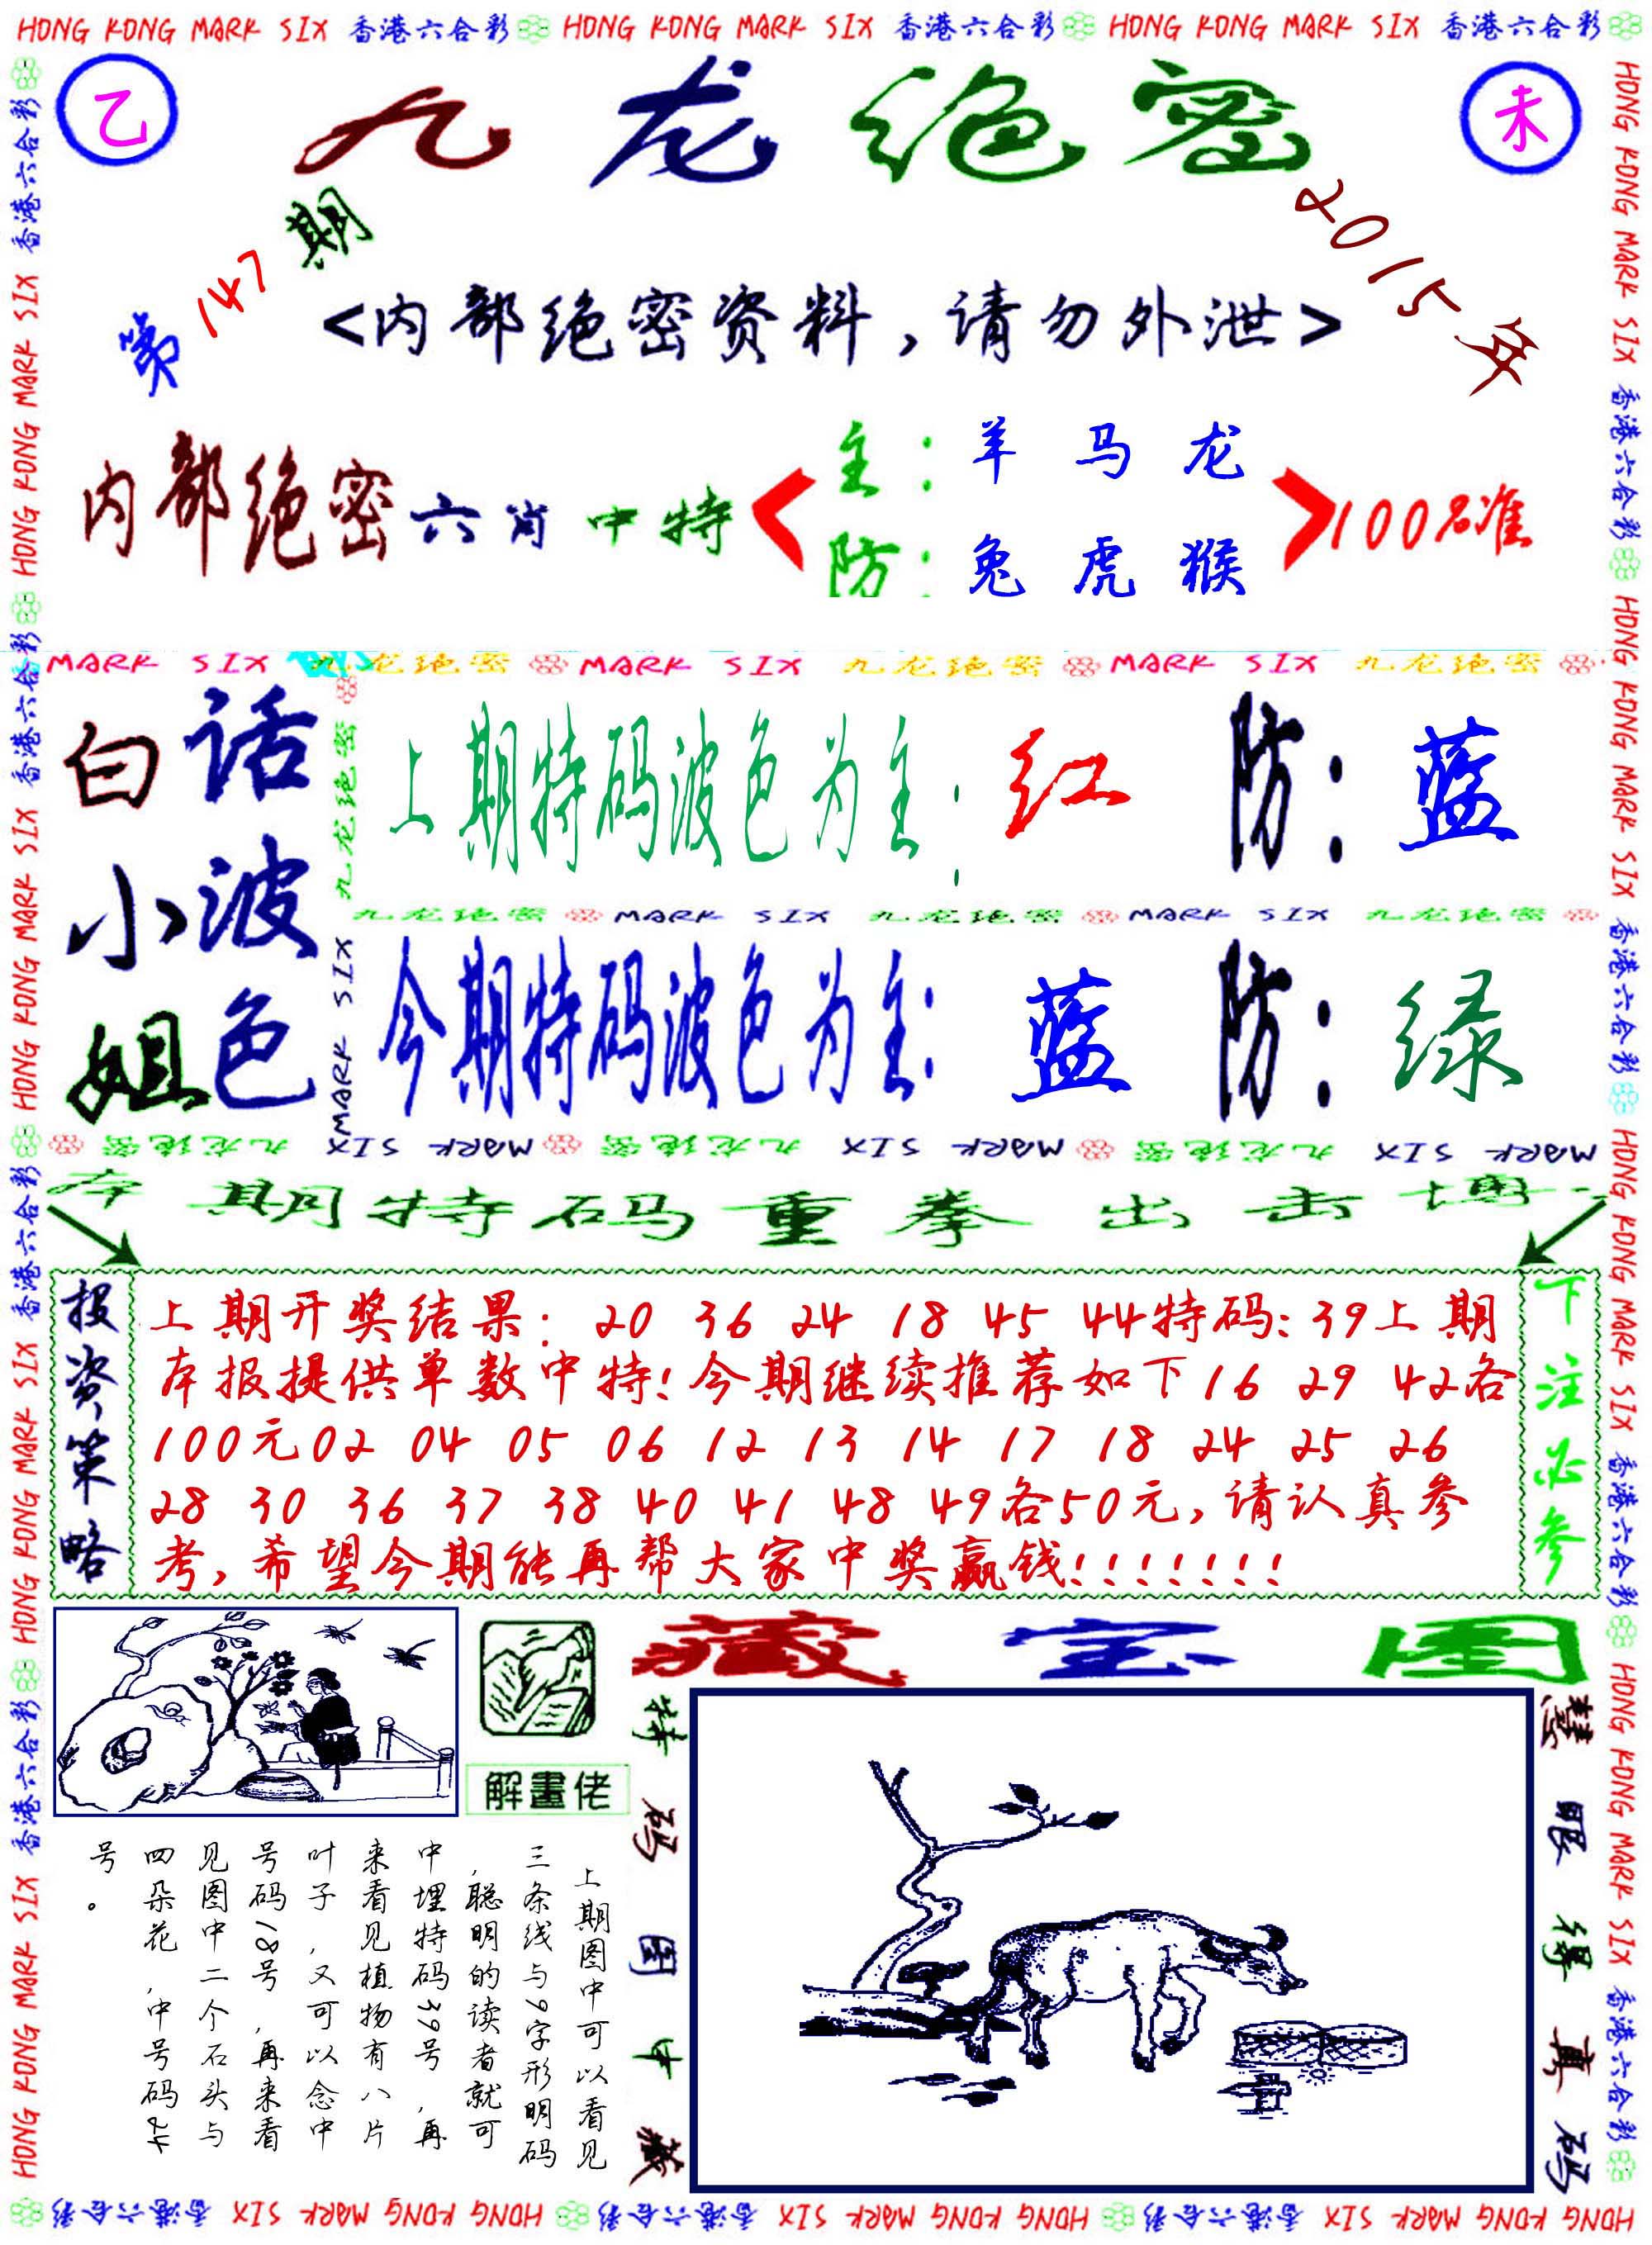 HONG KONG MARK SIX 香港六合彩 HONG KONG MARK SIX 香港六合彩 HONG KONG MARK SIX 香港六合彩
乙
九龙绝密
未
第147期
2015年
<内部绝密资料,请勿外泄>
内部绝密六肖中特
主:羊马龙
防:兔虎猴
100%准
MARK SIX 九龙绝密 MARK SIX 九龙绝密 MARK SIX 九龙绝密
白小姐
话波色
九龙绝密 MARK SIX
上期特码波色为主:红 防:蓝
九龙绝密 MARK SIX 九龙绝密 MARK SIX 九龙绝密
今期特码波色为主:蓝 防:绿
MARK SIX 九龙绝密 MARK SIX 九龙绝密 MARK SIX 九龙绝密
本期特码重拳出击博
投资策略
上期开奖结果: 20 36 24 18 45 44特码:39上期
本报提供单数中特!今期继续推荐如下16 29 42各
100元02 04 05 06 12 13 14 17 18 24 25 26
28 30 36 37 38 40 41 48 49各50元,请认真参
考,希望今期能再帮大家中奖赢钱!!!!!!!
下注必参
解畫佬
藏宝图
特码图中藏
慧眼得真码
上期图中可以看见
三条线与9字形明码
,聪明的读者就可
中埋特码39号,再
来看见植物有八片
叶子,又可以念中
号码18号,再来看
见图中二个石头与
四朵花,中号码24
号。
HONG KONG MARK SIX 香港六合彩 HONG KONG MARK SIX 香港六合彩 HONG KONG MARK SIX 香港六合彩 HONG KONG MARK SIX 香港六合彩
HONG KONG MARK SIX 香港六合彩 HONG KONG MARK SIX 香港六合彩 HONG KONG MARK SIX 香港六合彩 HONG KONG MARK SIX 香港六合彩
HONG KONG MARK SIX 香港六合彩 HONG KONG MARK SIX 香港六合彩 HONG KONG MARK SIX 香港六合彩